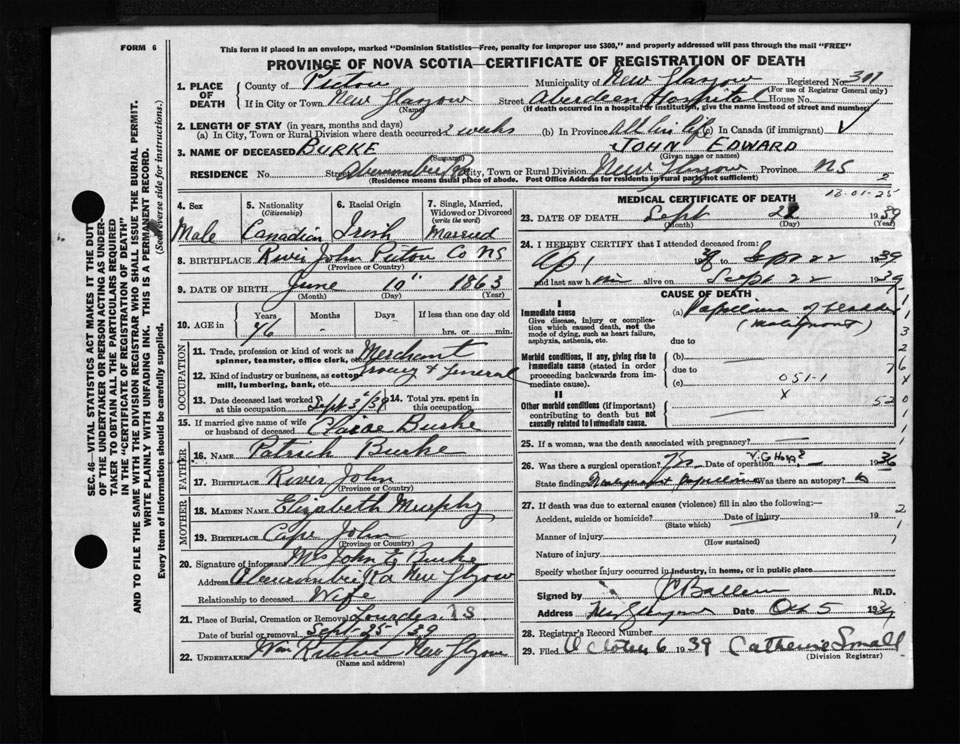 FORM 6
This form if placed in an envelope, marked "Dominion Statistics—Free, penalty for improper use $300," and properly addressed will pass through the mail "FREE"
PROVINCE OF NOVA SCOTIA—CERTIFICATE OF REGISTRATION OF DEATH
SEC. 46—VITAL STATISTICS ACT MAKES IT THE DUTY
OF THE UNDERTAKER OR PERSON ACTING AS UNDER-
TAKER TO OBTAIN ALL THE PARTICULARS REQUIRED
IN THE "CERTIFICATE OF REGISTRATION OF DEATH"
AND TO FILE THE SAME WITH THE DIVISION REGISTRAR WHO SHALL ISSUE THE BURIAL PERMIT.
WRITE PLAINLY WITH UNFADING INK. THIS IS A PERMANENT RECORD.
Every item of information should be carefully supplied. (See reverse side for instructions.)
1. PLACE OF DEATH County of Pictou Municipality of New Glasgow Registered No.
(For use of Registrar General only)
If in City or Town New Glasgow Street Aberdeen Hospital House No.
(Name) (If death occurred in a hospital or institution, give the name instead of street and number)
2. LENGTH OF STAY (in years, months and days)
(a) In City, Town or Rural Division where death occurred 2 weeks (b) In Province All his life (c) In Canada (if immigrant)
3. NAME OF DECEASED BURKE JOHN EDWARD
(Surname) (Given name or names)
RESIDENCE No. Street Abercrombie Rd City, Town or Rural Division New Glasgow Province NS
(Residence means usual place of abode. Post Office Address for residents in rural parts not sufficient)
4. Sex Male
5. Nationality (Citizenship) Canadian
6. Racial Origin Irish
7. Single, Married, Widowed or Divorced (write the word) Married
8. BIRTHPLACE River John Pictou Co NS
(Province or Country)
9. DATE OF BIRTH June 10" 1863
(Month) (Day) (Year)
10. AGE in Years 76 Months - Days - If less than one day
hrs. or min.
OCCUPATION
11. Trade, profession or kind of work as spinner, teamster, office clerk, etc. Merchant
12. Kind of industry or business, as cotton mill, lumbering, bank, etc. Grocery & General
13. Date deceased last worked at this occupation Sept 3/39 14. Total yrs. spent in this occupation
15. If married give name of wife or husband of deceased Burke
FATHER
16. NAME Patrick Burke
17. BIRTHPLACE River John
(Province or Country)
MOTHER
18. MAIDEN NAME Elizabeth Murphy
19. BIRTHPLACE Cape John
(Province or Country)
20. Signature of informant Mrs John E Burke
Address Abercrombie Rd New Glasgow
Relationship to deceased Wife
21. Place of Burial, Cremation or Removal Lourdes N S
Date of burial or removal Sept 25/39
22. UNDERTAKER Wm Ritchie New Glasgow
(Name and address)
18-01-25
MEDICAL CERTIFICATE OF DEATH
23. DATE OF DEATH Sept 22 1939
(Month) (Day) (Year)
24. I HEREBY CERTIFY that I attended deceased from:
Ap 1 19 to Sept 22 1939
and last saw him alive on Sept 22 1939
CAUSE OF DEATH
I
Immediate cause
Give disease, injury or complication which caused death, not the mode of dying, such as heart failure, asphyxia, asthenia, etc.
(a) Papilloma of bladder
(malignant)
due to
Morbid conditions, if any, giving rise to immediate cause (stated in order proceeding backwards from immediate cause).
(b)
due to
(c)
051-1
X
II
Other morbid conditions (if important) contributing to death but not causally related to immediate cause.
25. If a woman, was the death associated with pregnancy?
26. Was there a surgical operation? Yes Date of operation V.G Hosp 1936
State findings Malignant Papilloma Was there an autopsy?
27. If death was due to external causes (violence) fill in also the following:
Accident, suicide or homicide? Date of injury 19
(State which)
Manner of injury
(How sustained)
Nature of injury
Specify whether injury occurred in industry, in home, or in public place
Signed by M.D.
Address New Glasgow Date Oct 5 1939
28. Registrar's Record Number
29. Filed October 6 1939 Catherine Small
(Division Registrar)